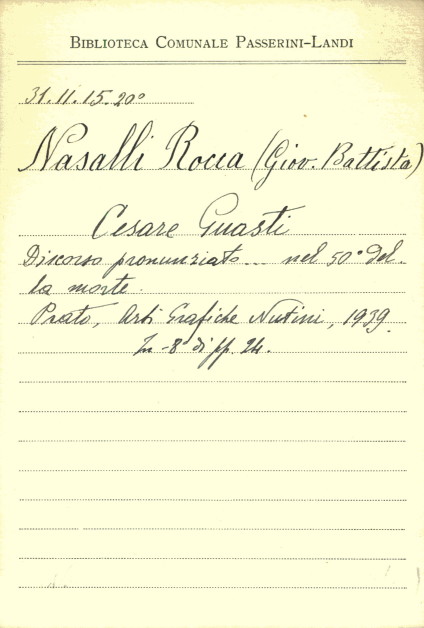 BIBLIOTECA COMUNALE PASSERINI-LANDI
31.11.15.20°
Nasalli Rocca (Giov. Battista)
Cesare Guasti
Discorso pronunziato... nel 50° del-
la morte.
Prato, Arti Grafiche Nutini, 1939.
In-8° di pp. 24.